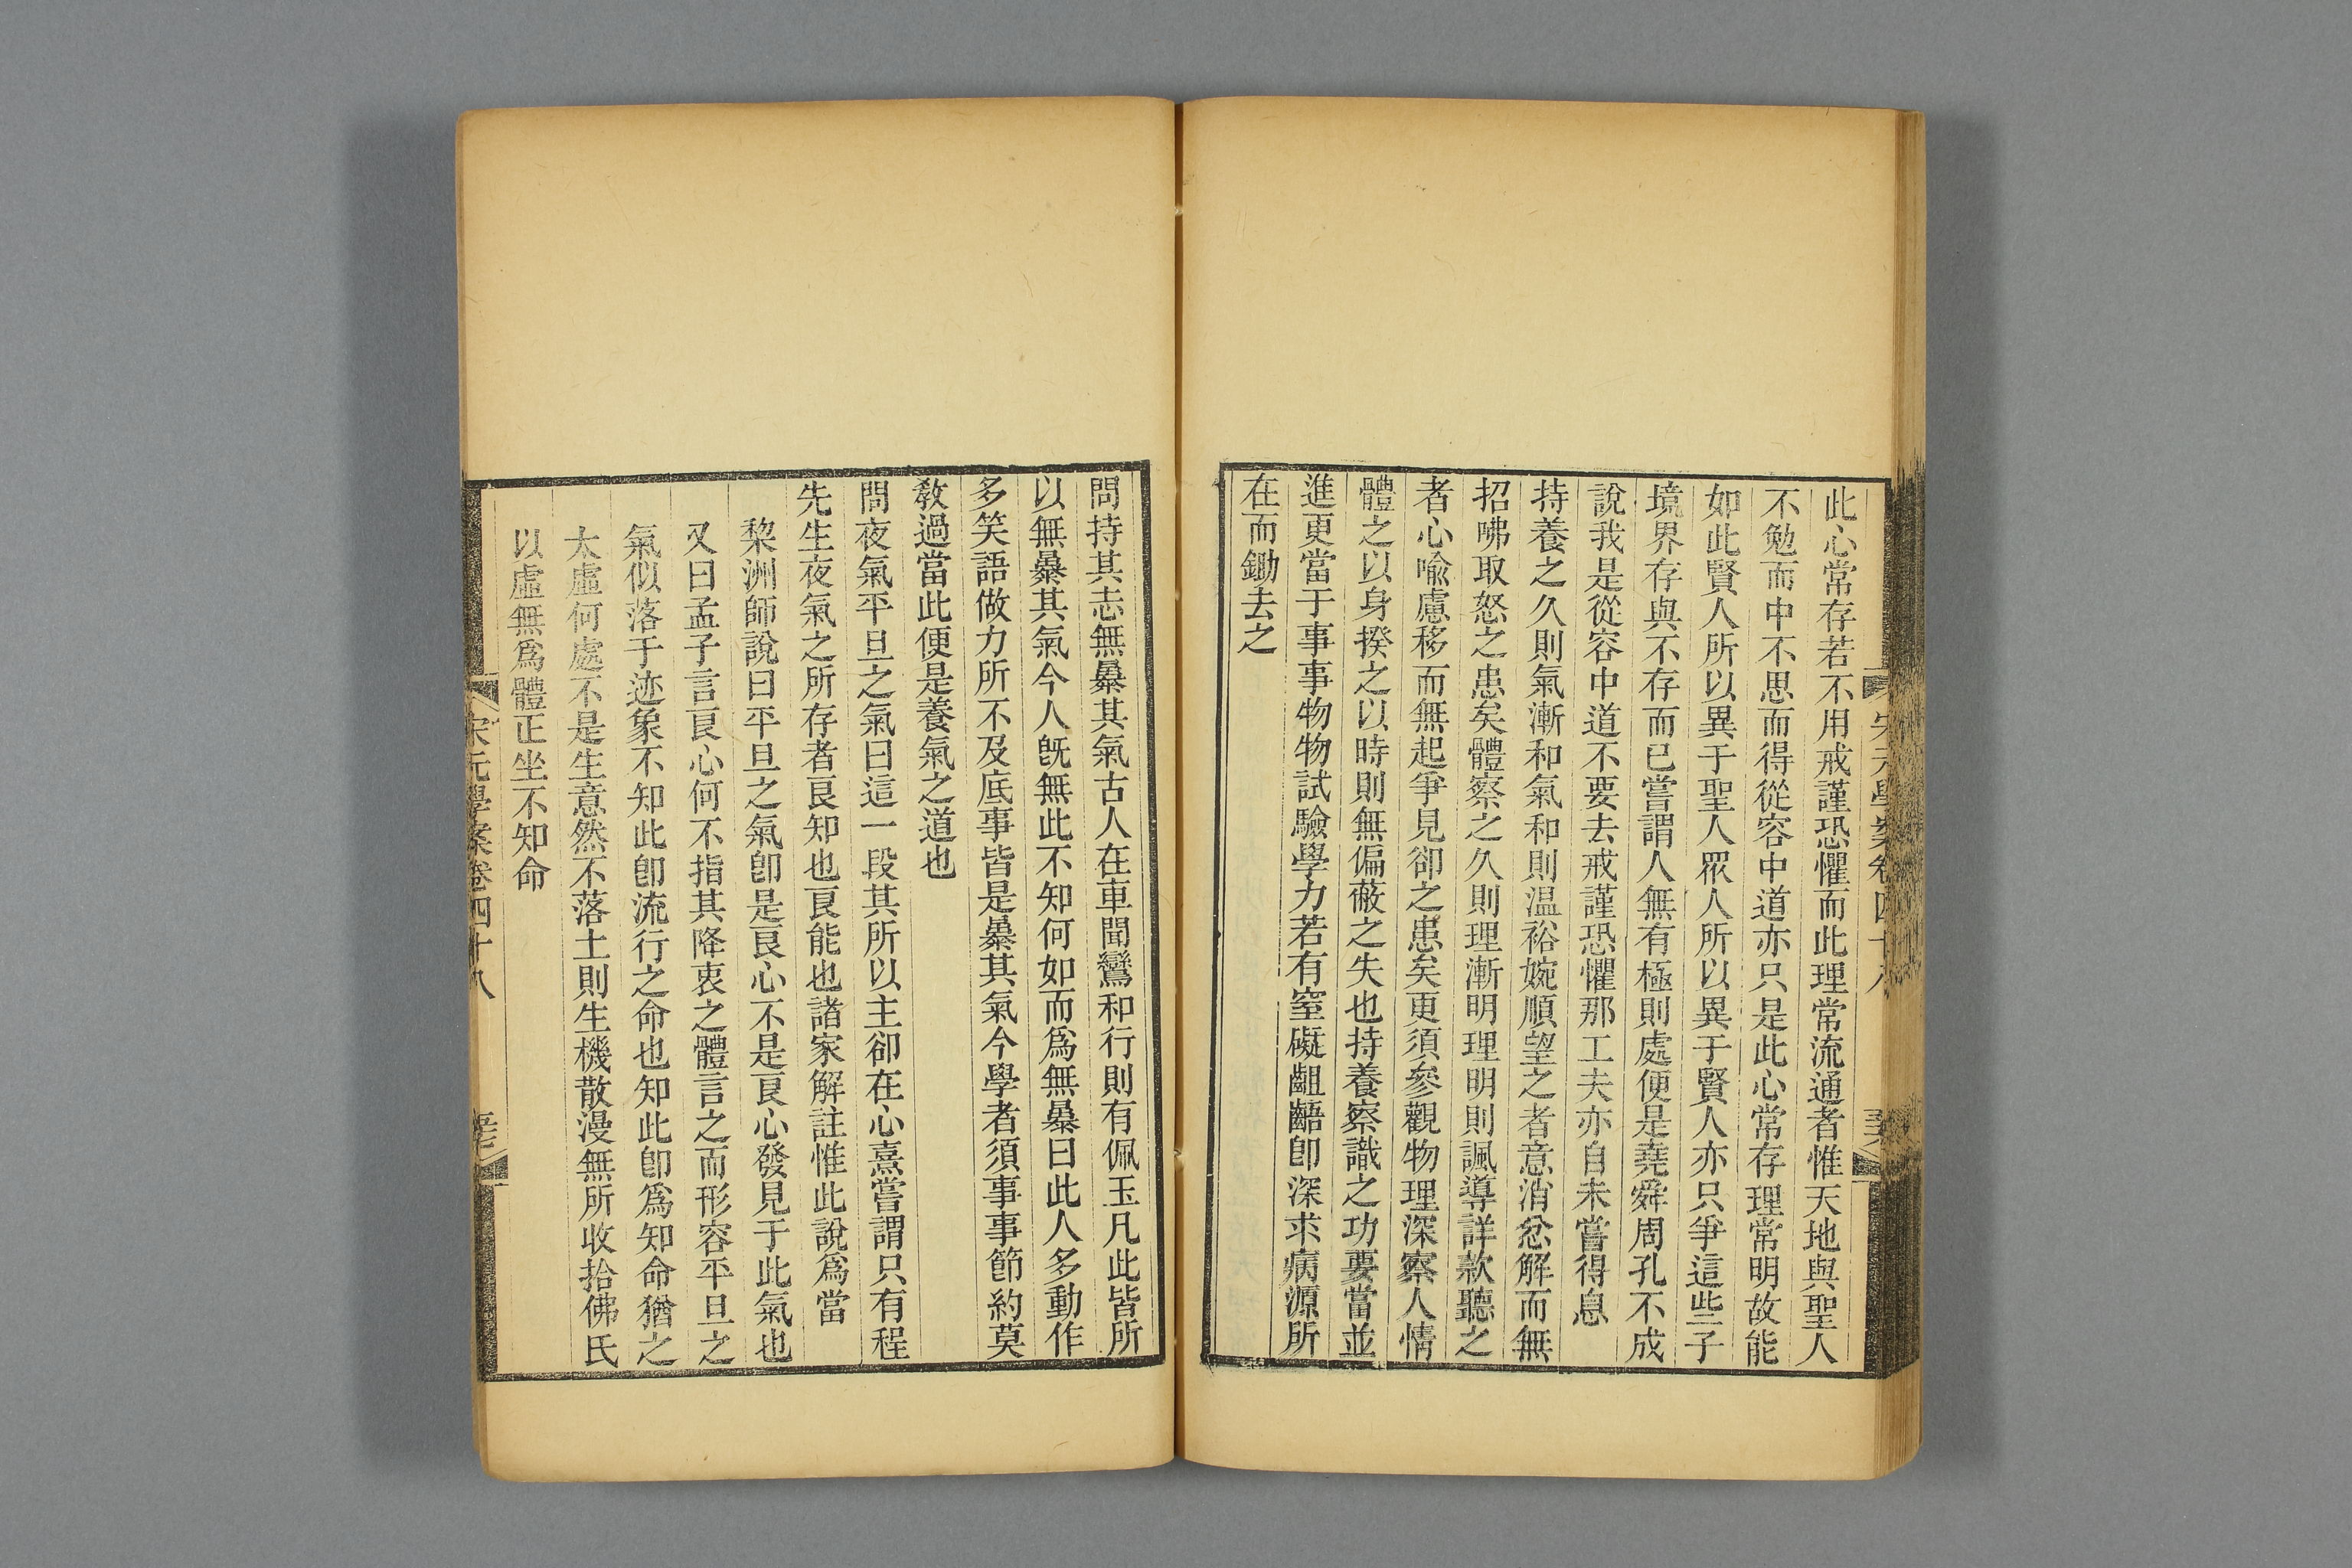 此心常存若不用戒謹恐懼而此理常流通者惟天地與聖人
不勉而中不思而得從容中道亦只是此心常存理常明故能
如此賢人所以異于聖人眾人所以異于賢人亦只爭這些子
境界存與不存而已嘗謂人無有極則處便是堯舜周孔不成
說我是從容中道不要去戒謹恐懼那工夫亦自未嘗得息
持養之久則氣漸和氣和則温裕婉順望之者意消忿解而無
招咈取怒之患矣體察之久則理漸明理明則諷導詳款聽之
者心喩慮移而無起爭見卻之患矣更須參觀物理深察人情
體之以身揆之以時則無偏蔽之失也持養察識之功要當並
進更當于事事物物試驗學力若有窒礙齟齬卽深求病源所
在而鋤去之
問持其志無暴其氣古人在車聞鸞和行則有佩玉凡此皆所
以無暴其氣今人旣無此不知何如而爲無暴曰此人多動作
多笑語做力所不及底事皆是暴其氣今學者須事事節約莫
敎過當此便是養氣之道也
問夜氣平旦之氣曰這一段其所以主卻在心熹嘗謂只有程
先生夜氣之所存者良知也良能也諸家解註惟此說爲當
黎洲師說曰平旦之氣卽是良心不是良心發見于此氣也
又曰孟子言良心何不指其降衷之體言之而形容平旦之
氣似落于迹象不知此卽流行之命也知此卽爲知命猶之
太虛何處不是生意然不落土則生機散漫無所收拾佛氏
以虛無爲體正坐不知命
宋元學案卷四十八